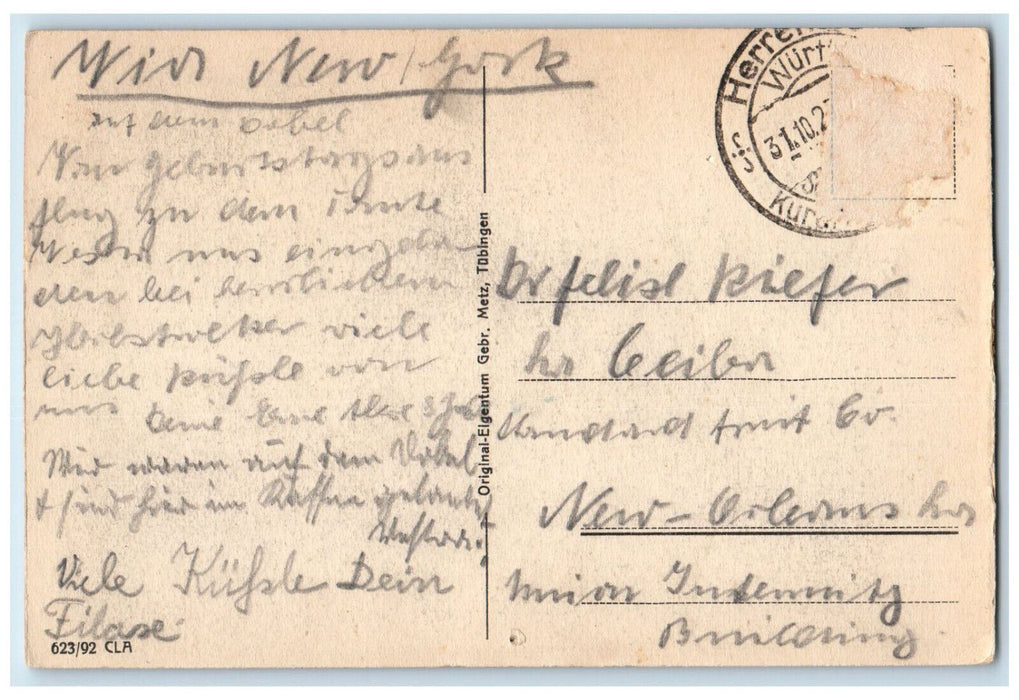 Wia New York
auf dem Dobel
Vom Geburtstagsaus
flug zu dem Tante
uns eingela
den bei herrlichem
Herbstwetter viele
liebe Küssle von
uns
Wir waren auf dem Dobel
+ sind hier im Kaffee gelandet
Viele Küssle Dein
Filase
623/92 CLA
Original-Eigentum Gebr. Metz, Tübingen
Herren
Württ
31.10.2
Kur
Dr felix Kiefer
La Ceiba
Standard fruit Co.
New-Orleans La
Union Indemnity
Building